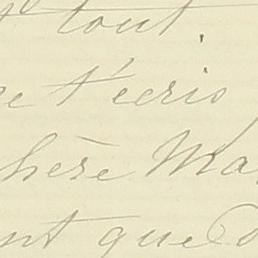 tout
t'ecris
hère Ma
nt que